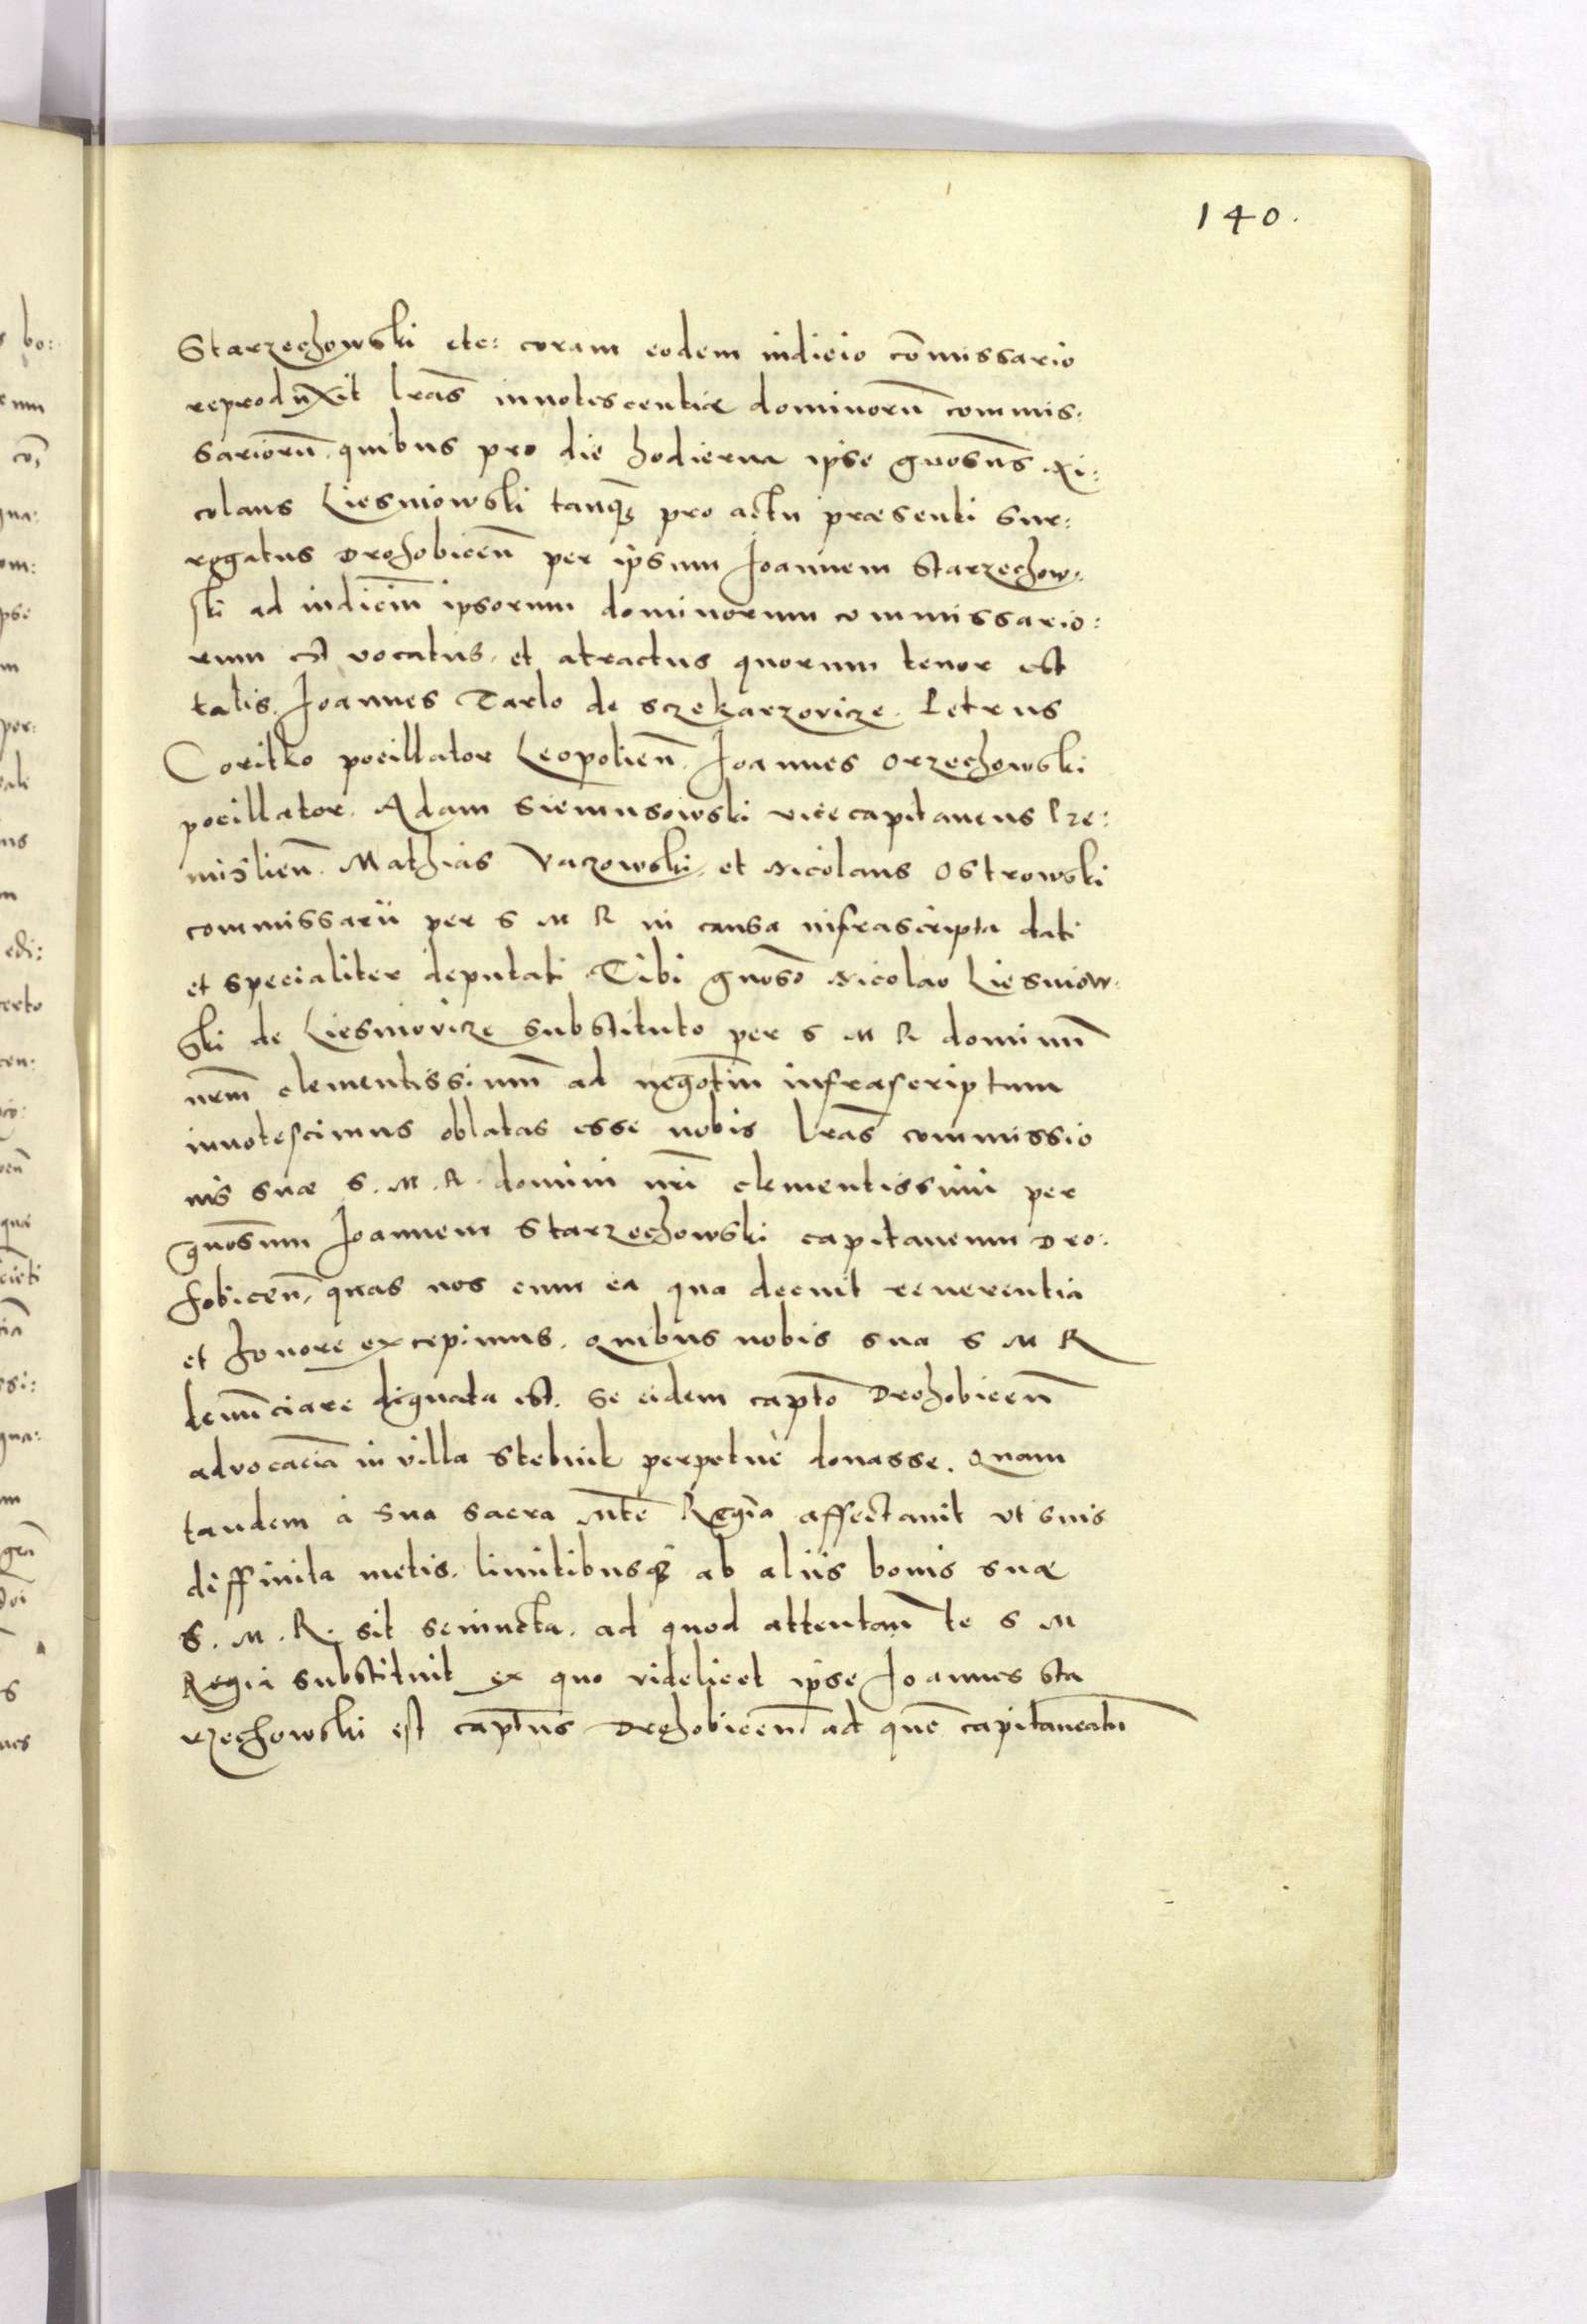 140.
Starzechowski etc: coram eodem iudicio cōmissario
reproduxit lr̃as innotescentiæ dominorũ commis:
sariorũ quibus pro die hodierna ipse gnosũs Ni:
colaus Liesniowski tanq̃ pro actu præsenti sur:
rogatus Drohobicen̄ per ipsum Joannem Starzechow:
ski ad iudiciũ ipsorum dominorum commissario:
rum est vocatus et atractus quorum tenor est
talis. Joannes Tarlo de Sczekarzovicze. Petrus
Coritko pocillator Leopolien̄. Joannes Orzechowski
pocillator. Adam Siemusowski vicecapitaneus Pre:
mislien̄. Mathias Vazowski, et Nicolaus Ostrowski
commissarii per S M R in causa infrascripta dati
et specialiter deputati Tibi gnosō Nicolao Liesniow:
ski de Liesniovicze substituto per S M R dominũ
nr̃m clementissimũ ad negotiũ infrascriptum
innotescimus oblatas esse nobis lr̃as commissio
nis suæ S. M. R. domini nr̃i clementissimi per
gnosũm Joannem Starzechowski capitaneum Dro:
hobicen̄, quas nos cum ea qua decuit reverentia
et honore excepimus. Quibus nobis sua S M R
denũciare dignata est. Se eidem captō Drohobicen̄
advocaciã in villa Stebnik perpetue donasse. Quam
tandem à sua sacra Mt̃e Regia affectavit vt suis
diffinita metis, limitibusq̃ ab aliis bonis suæ
S. M. R. sit seiuncta. ad quod attentan̄ te S M
Regia substituit ex quo videlicet ipse Joannes Sta
rzechowski est capt̃us Drohobicen̄ ad quẽ capitaneatũ